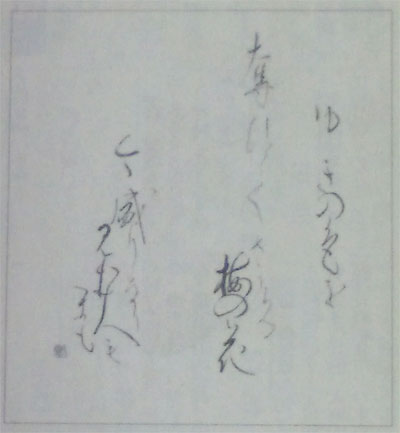 ゆきの色を
奪ひてさける
梅の花
今盛りなり
見む人も
がも